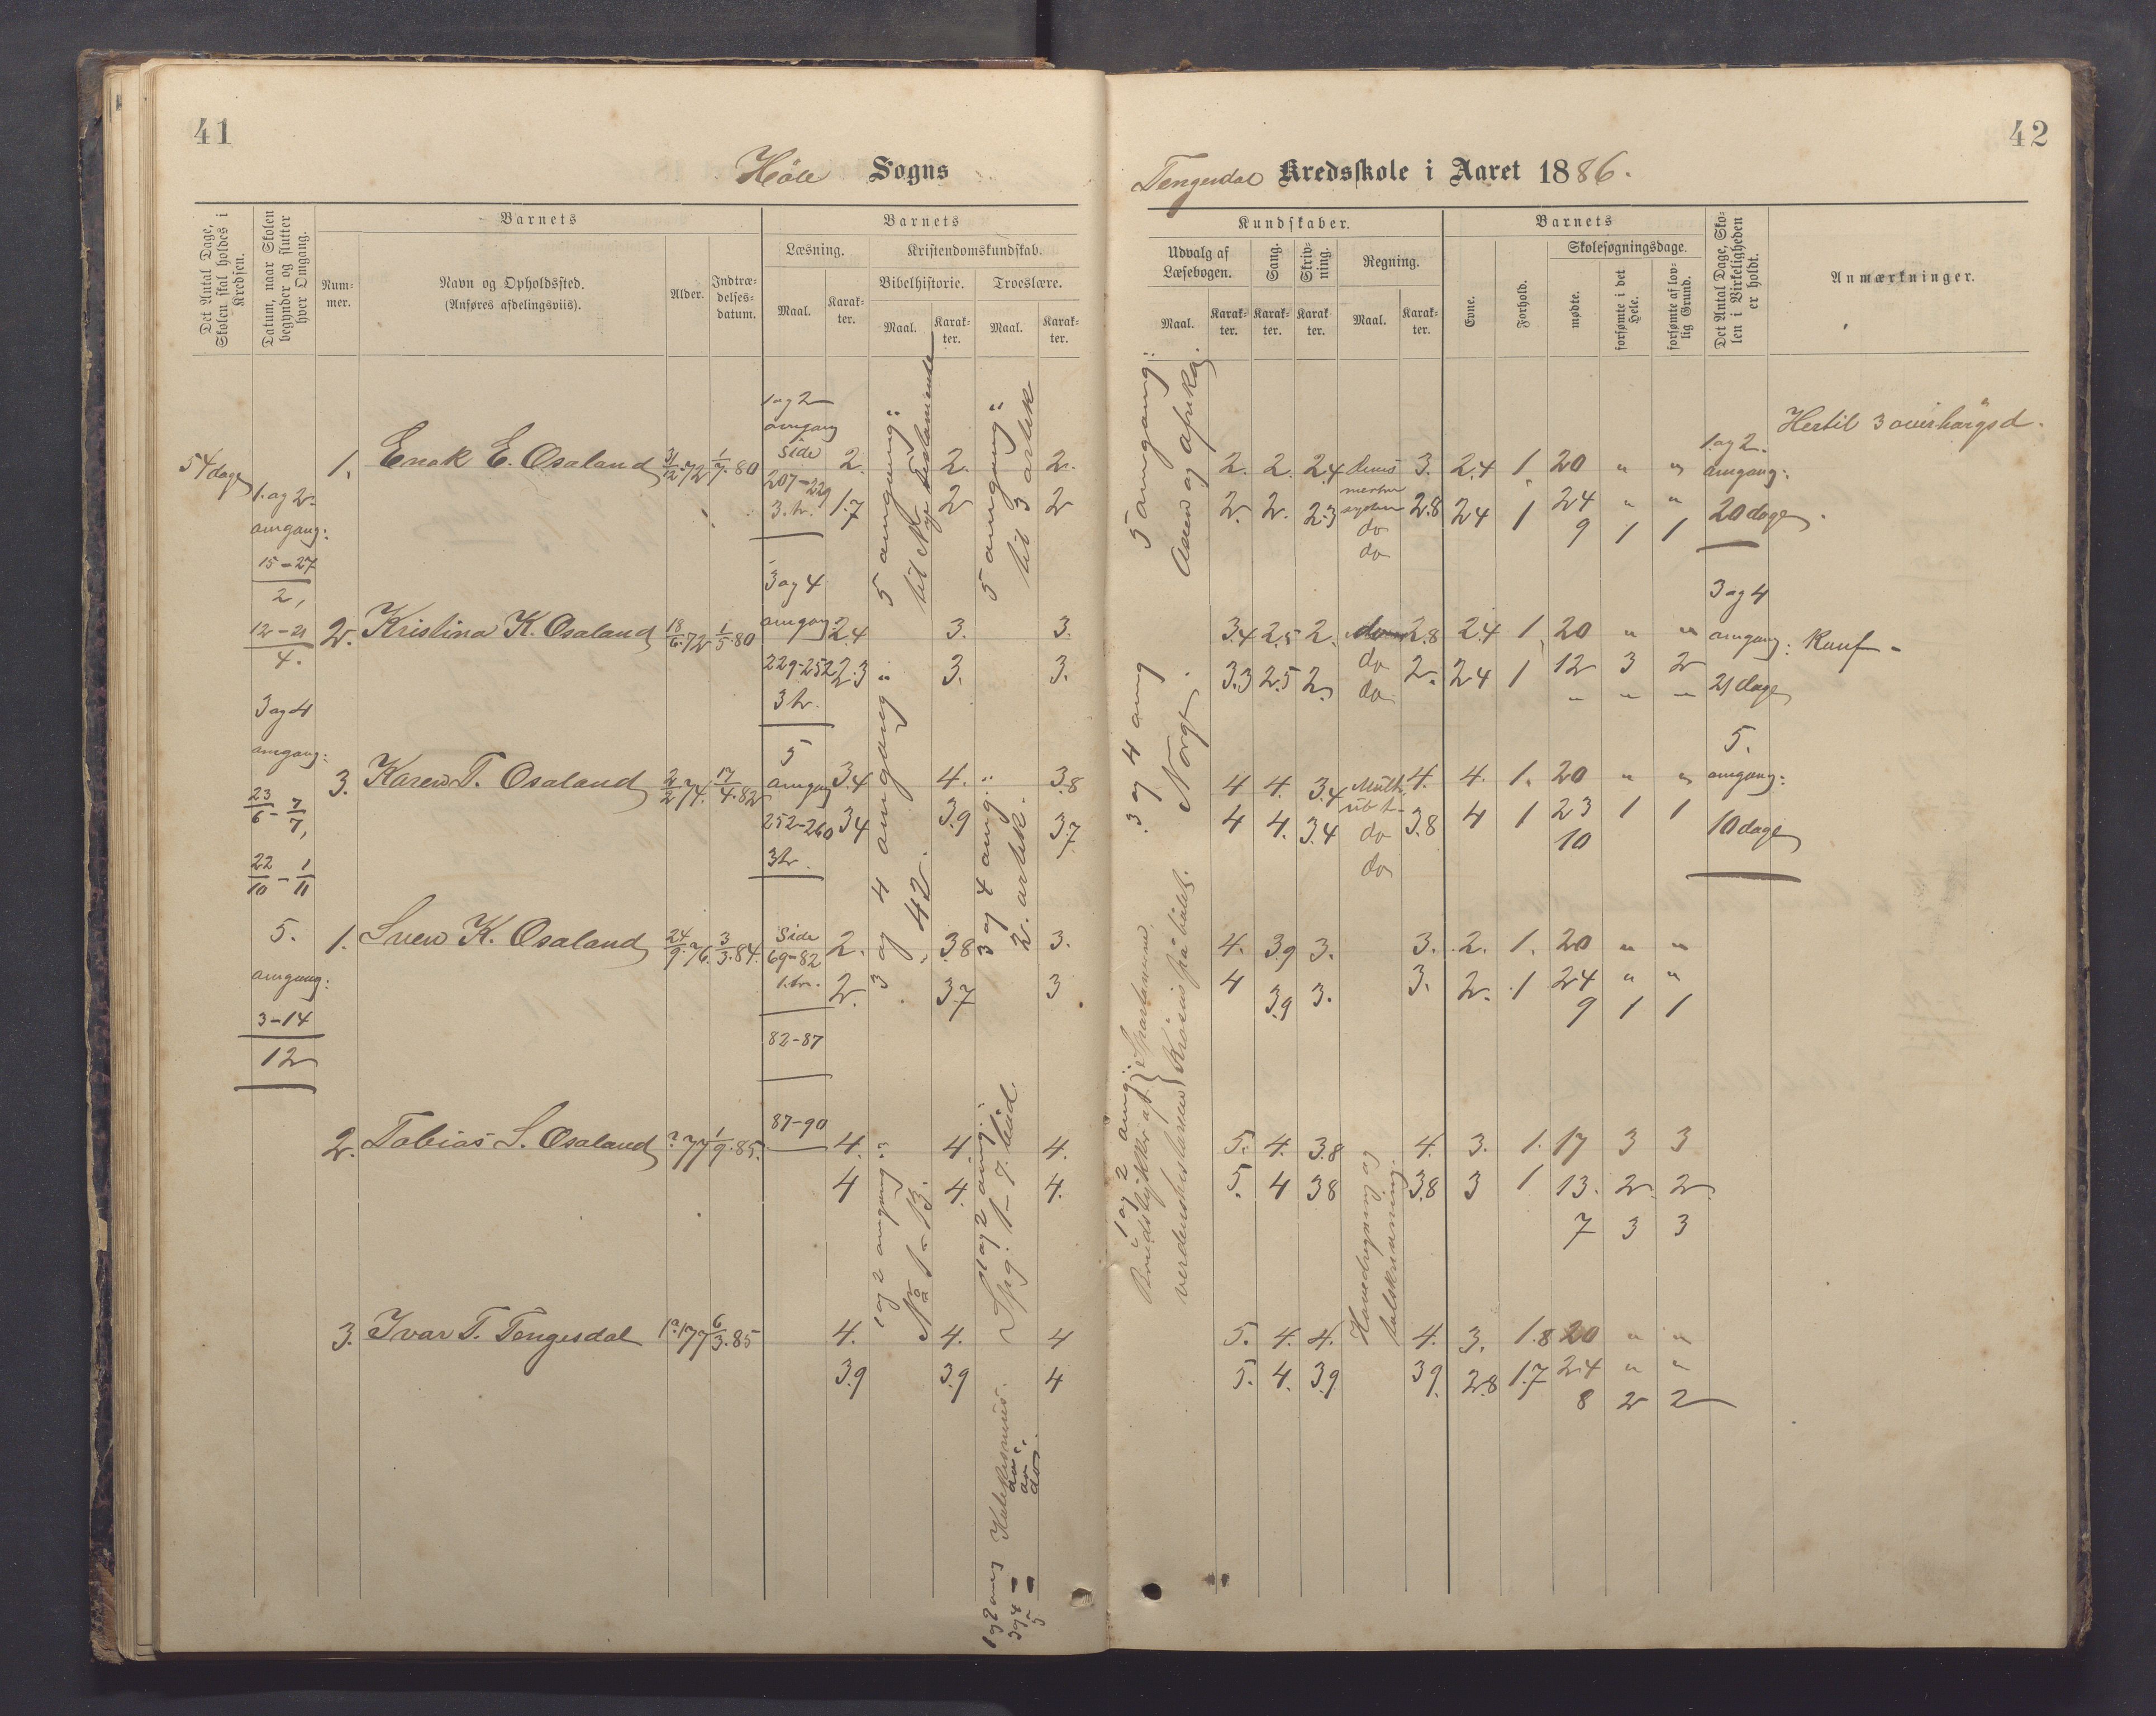 41
Höle Sogns
Det Antal Dage, Skolen skal holdes i Kredsen.
Datum, naar Skolen begynder og slutter hver Omgang.
Barnets
Num-
mer.
Navn og Opholdssted.
(Anføres afdelingsviis).
Alder.
Indtræ-
delses-
datum.
Barnets
Læsning.
Kristendomskundskab.
Bibelhistorie. Troeslære.
Maal. Karak-
ter. Maal. Karak-
ter. Maal. Karak-
ter.
54 dage
1. og 2.
omgang:
15-27
2,
12-21
4.
3 og 4
omgang:
23/6 - 7/7,
22/10 - 1/11
5.
omgang:
3-14
12
1. Enok E. Osaland 31/12.72 1/7.80 2. 2. 2.
1.7 2 2
2. Kristina K. Osaland 18/6.72 1/5.80 2.4 3. 3.
2.3 3. 3.
3. Karen T. Osaland 2/2 74. 17/4.82 3.4 4. 3.8
3.4 3.9 3.7
1. Sven K. Osaland 24/9.76. 3/3.84. 2. 3.8 3.
2. 3.7 3
2. Tobias S. Osaland ?.77 1/9.85. 4. 4. 4.
4 4. 4.
3. Ivar T. Tengesdal 77 6/3.85 4. 4. 4
3.9 3.9 4
1 og 2
omgang
side
207-229
3. tr.
3 og 4
omgang
229-252
3 tr.
5
omgang
252-260
3 tr.
side
69-82
1. tr.
82-87
87-90
5 omgang:
til Nye testamente
3 og 4 omgang:
42.
1 og 2 omgang:
No 1-13.
5 omgang:
til 3 artik
3 og 4 omg:
2. artik.
1 og 2 omg:
Spg: 1-7. bud.
1 og 2 omg Katekismus.
3 og 4 - do
5 - do
42
Tengesdal Kredsskole i Aaret 1886.
Kundskaber.
Udvalg af
Læsebogen. Sang. Skriv-
ning. Regning.
Maal. Karak-
ter. Karak-
ter. Karak
ter. Maal. Karak-
ter.
Barnets
Evne. Forhold. Skolesøgningsdage.
mødte. forsømte i det Hele. forsømte af lov-
lig Grund.
Det Antal Dage, Sko-
len i Virkeligheden
er holdt.
Anmærkninger.
5 omgang:
Asien og afrika.
3 og 4 omg
Norge.
1 og 2 omg:
Brudstykker af
verdenshistorien
Spartanerne.
Krösus på bålet.
2. 2. 2.4 3. 2.4 1. 20 " "
2. 2. 2.3 do 2.8 2.4 1 24 " "
do 9 1 1
3.4 2.5 2. 2.8 2.4 1. 20 " "
3.3 2.5 2. do 2. 2.4 1 12 3 2
do " " "
4 4. 3.4 Mult. 4. 4. 1. 20 " "
4 4. 3.4 do 3.8 4 1 23 1 1
do 10
4. 3.9 3. 3. 2. 1. 20 " "
4 3.9 3. 3. 2. 1 24 " "
9 1 1
5. 4. 3.8 4. 3. 1. 17 3 3
5. 4 3.8 3.8 3 1 13. 2. 2
7 3 3
5. 4. 4. 4. 3. 1.8 20 " "
5. 4. 3.9 3.9 2.8 1.7 24 " "
8 2 2
Hovedregning og
talskrivning.
1. og 2.
omgang:
20 dage
3 og 4
omgang:
21 dage
5.
omgang:
10 dage
Hertil 3
Kunf.